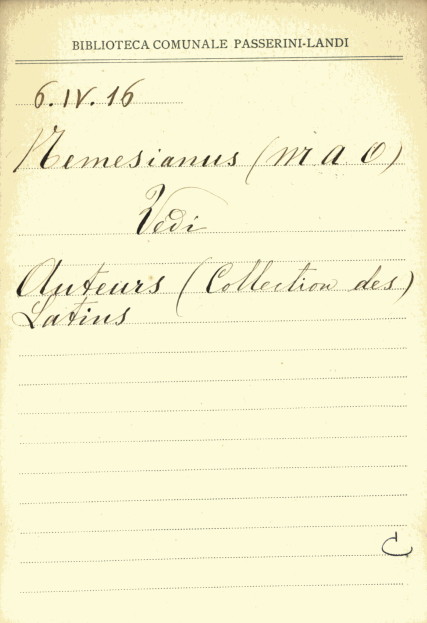 BIBLIOTECA COMUNALE PASSERINI-LANDI
6.IV.16
Nemesianus (M A O)
Vedi
Auteurs (Collection des)
Latins
C